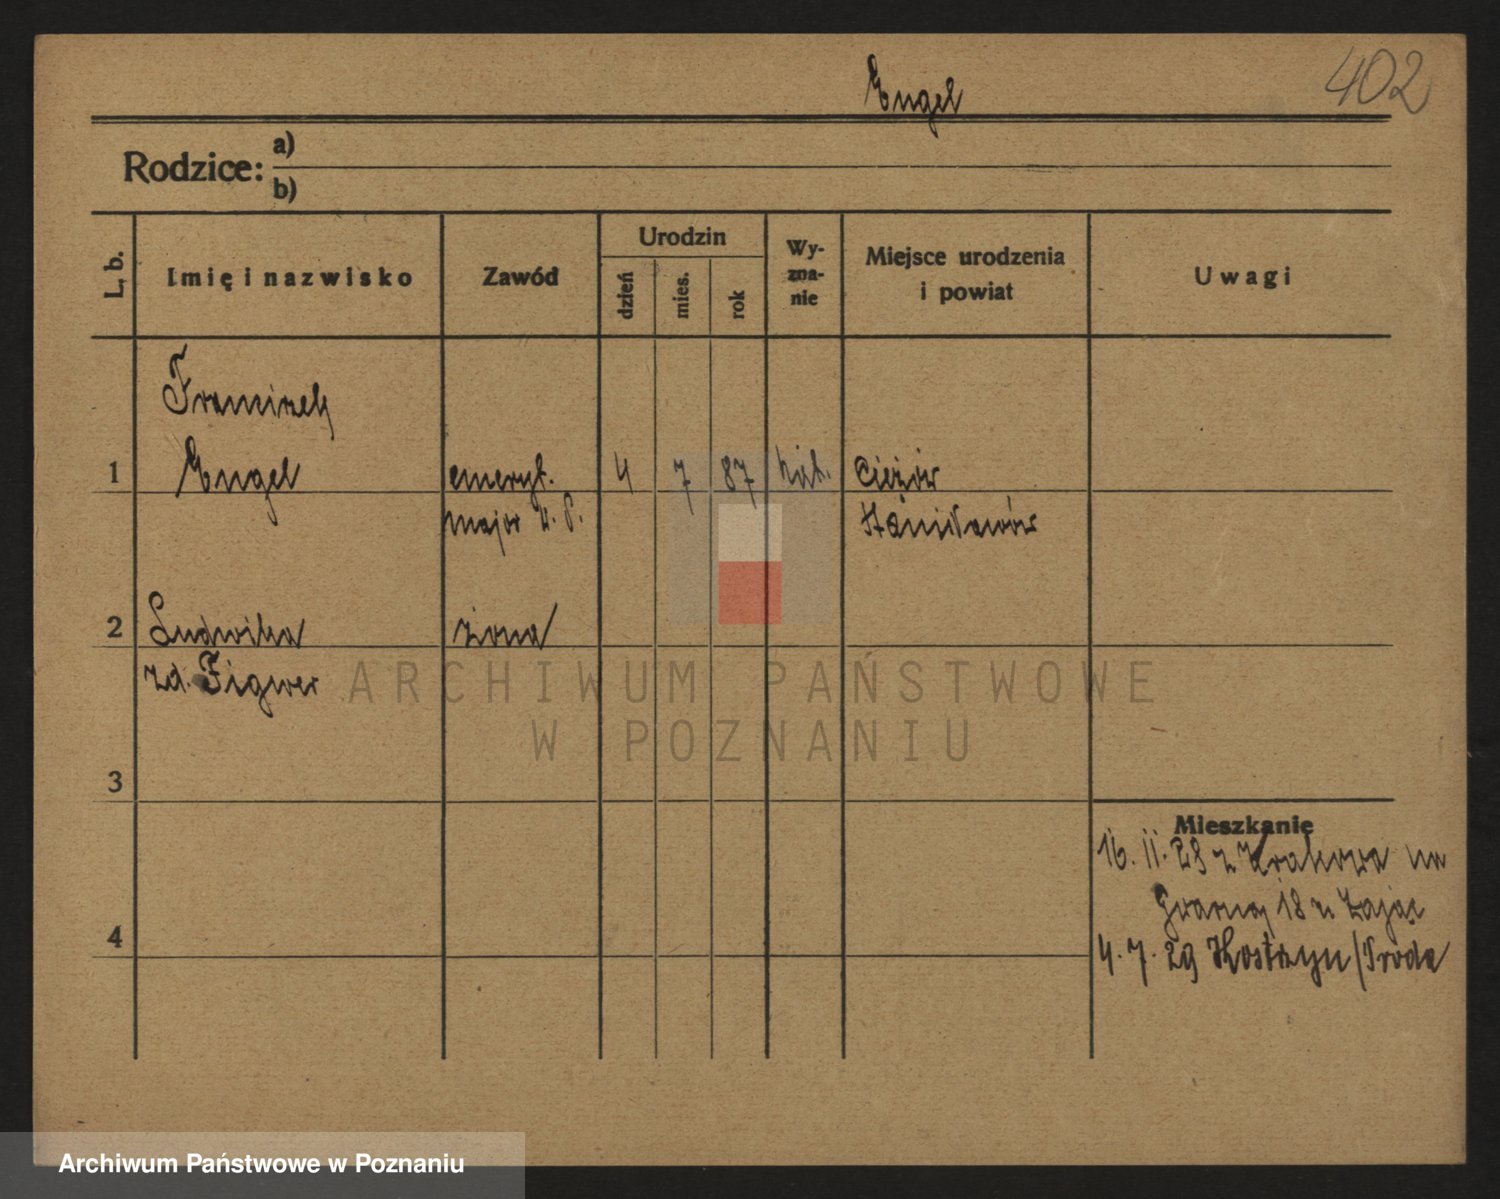 Engel
402
Rodzice:
a)
b)
L. b.
Imię i nazwisko
Zawód
Urodzin
dzień
mies.
rok
Wy-
zna-
nie
Miejsce urodzenia
i powiat
Uwagi
Franciszek
1 Engel emeryt. 4 7 87 kat. Ciężów
major W. P. Stanisławów
2 Ludwika żona
zd. Figwer
3
4
Mieszkanie
16. II. 28 z Krakowa na
Gwarną 18 u Zając
4. 7. 29 Kostrzyn/Środa
ARCHIWUM PAŃSTWOWE
W POZNANIU
Archiwum Państwowe w Poznaniu